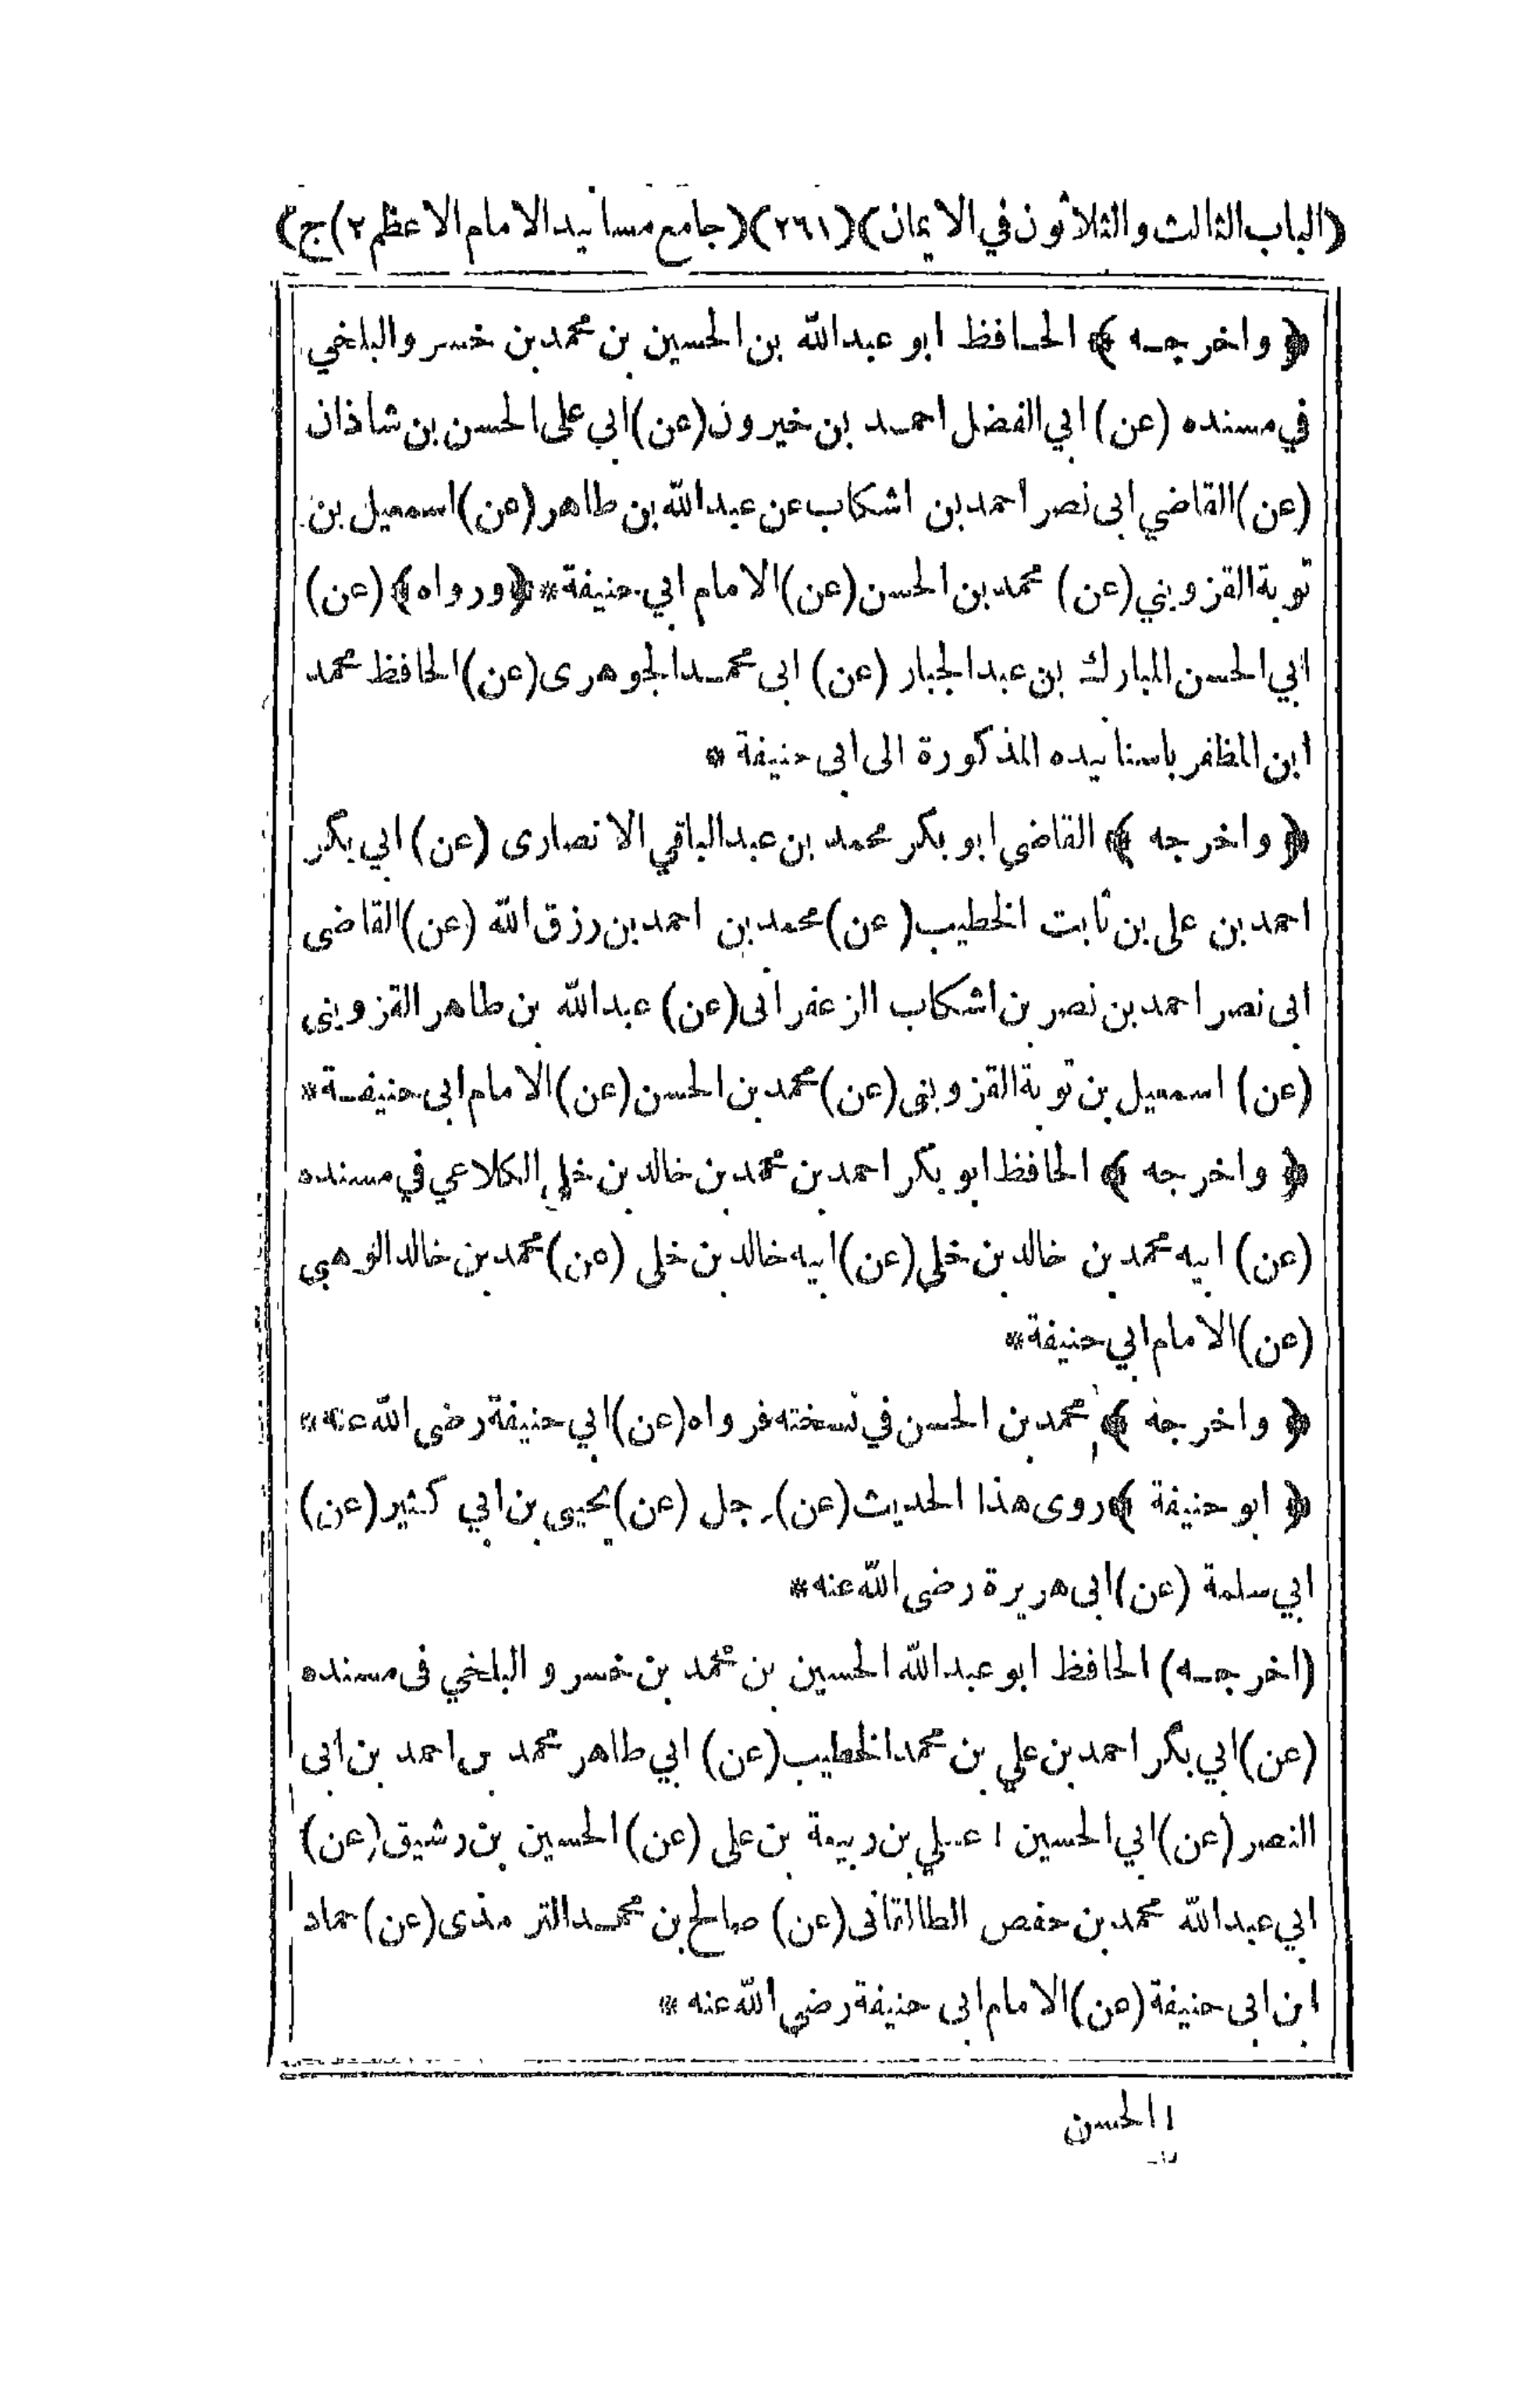 (الباب الثالث والثلاثون في الايمان) (٢٦١) (جامع مسانيد الامام الاعظم ٢) ج)
﴿ واخرجه ﴾ الحافظ ابو عبدالله بن الحسين بن محمد بن خسرو البلخي
في مسنده (عن) ابي الفضل احمد بن خيرون (عن) ابي على الحسن بن شاذان
(عن) القاضي ابى نصر احمد بن اشكاب عن عبدالله بن طاهر (عن) اسمعيل بن
توبة القزويني (عن) محمد بن الحسن (عن) الامام ابي حنيفة * ﴿ ورواه ﴾ (عن)
ابي الحسن المبارك بن عبدالجبار (عن) ابى محمد الجوهرى (عن) الحافظ محمد
ابن المظفر باسنا نيده المذكورة الى ابى حنيفة *
﴿ واخرجه ﴾ القاضي ابو بكر محمد بن عبدالباقي الانصارى (عن) ابي بكر
احمد بن على بن ثابت الخطيب (عن) محمد بن احمد بن رزق الله (عن) القاضى
ابى نصر احمد بن نصر بن اشكاب الزعفرانى (عن) عبدالله بن طاهر القزوينى
(عن) اسمعيل بن توبة القزوينى (عن) محمد بن الحسن (عن) الامام ابى حنيفة *
﴿ واخرجه ﴾ الحافظ ابو بكر احمد بن محمد بن خالد بن خلي الكلاعي في مسنده
(عن) ابيه محمد بن خالد بن خلي (عن) ابيه خالد بن خلى (عن) محمد بن خالد الوهبي
(عن) الامام ابي حنيفة *
﴿ واخرجه ﴾ محمد بن الحسن في نسخته فرواه (عن) ابي حنيفة رضى الله عنه *
﴿ ابو حنيفة ﴾ روى هذا الحديث (عن) رجل (عن) يحيى بن ابي كثير (عن)
ابي سلمة (عن) ابى هريرة رضى الله عنه *
(اخرجه) الحافظ ابو عبدالله الحسين بن محمد بن خسرو البلخي فى مسنده
(عن) ابي بكر احمد بن علي بن محمد الخطيب (عن) ابي طاهر محمد بن احمد بن ابى
النصر (عن) ابي الحسين ١ علي بن ربيعة بن على (عن) الحسين بن رشيق (عن)
ابي عبدالله محمد بن حفص الطالقانى (عن) صالح بن محمد الترمذى (عن) حماد
ابن ابى حنيفة (عن) الامام ابى حنيفة رضى الله عنه *
١ الحسن